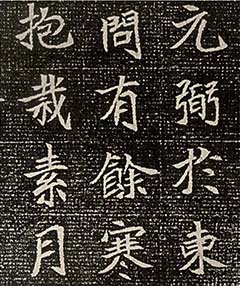 元弼於東
問有餘寒
抱栽素月